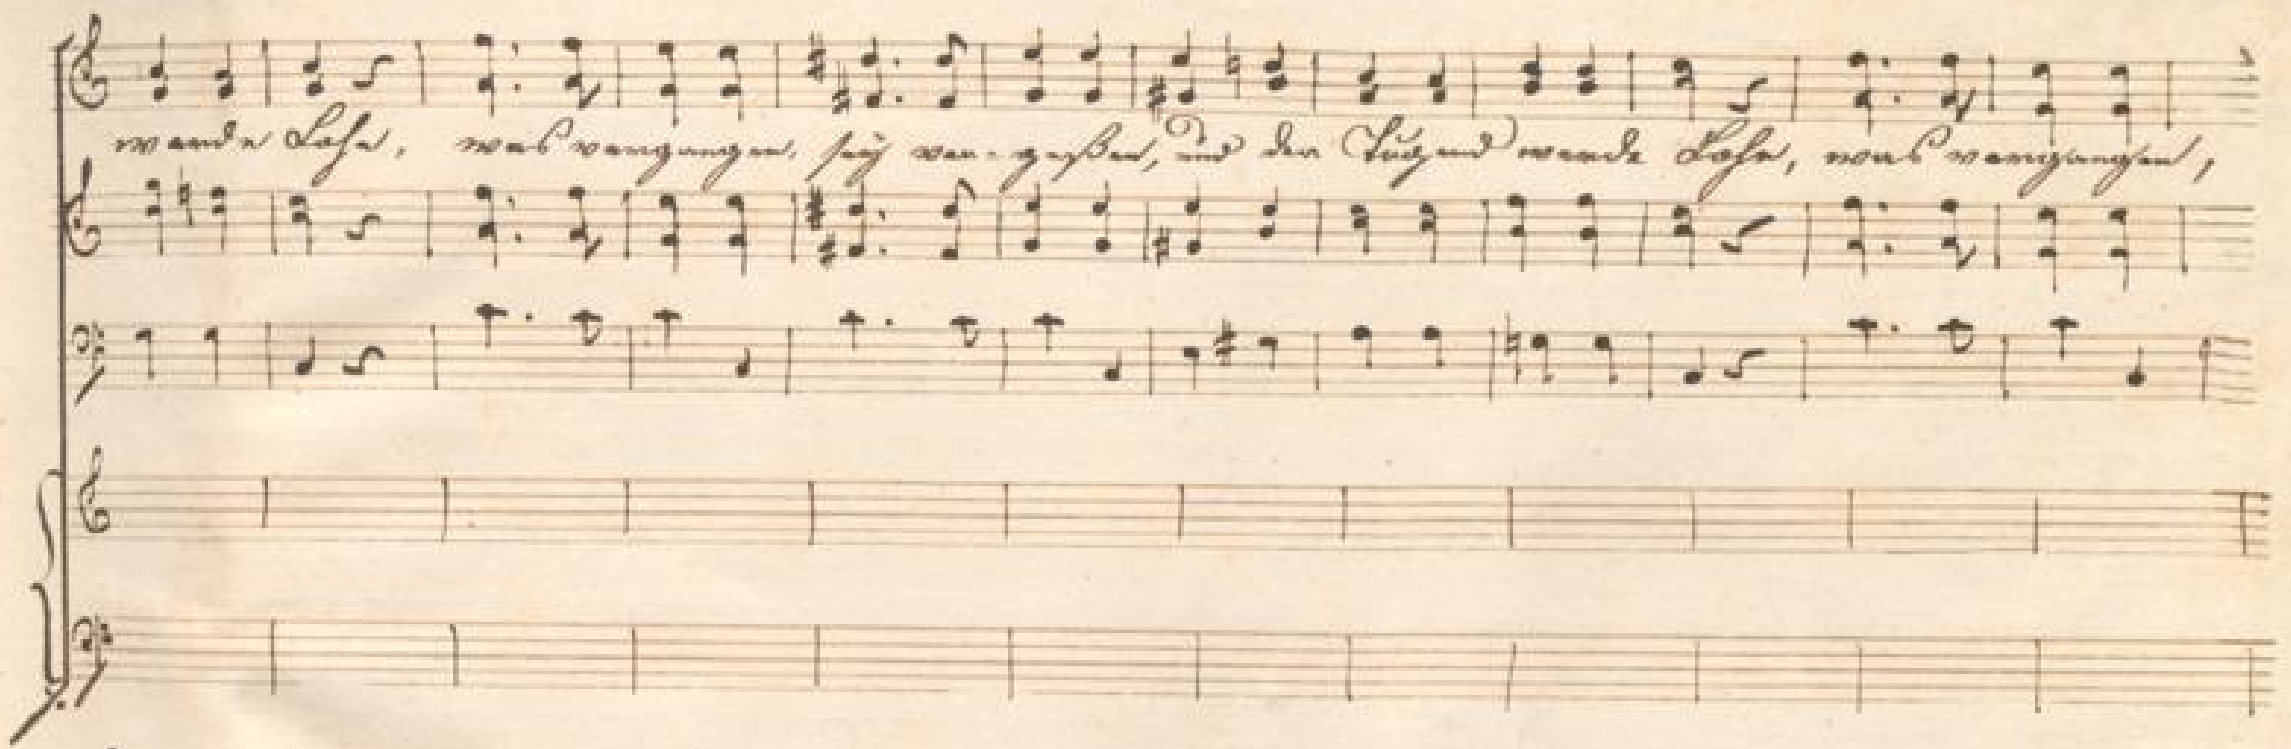 werde Lohn, was vergangen, sey ver- geßen, und der Tugend werde Lohn, was vergangen,